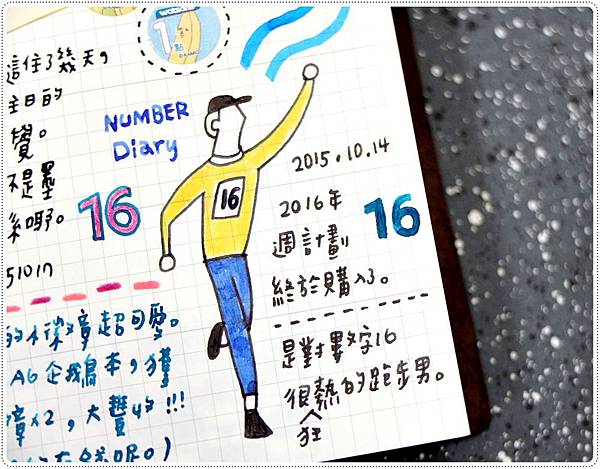 這住了幾天,
主日的
覺。
不是墨
系嗎。
16
510in
NUMBER
Diary
16
1
點
2015.10.14
2016年
週計劃
終於購入3。
16
是對數字16
很熱的跑步男。
狂
的木漿章超可愛。
A6企鵝本,獲
章x2,大賣4的!!!